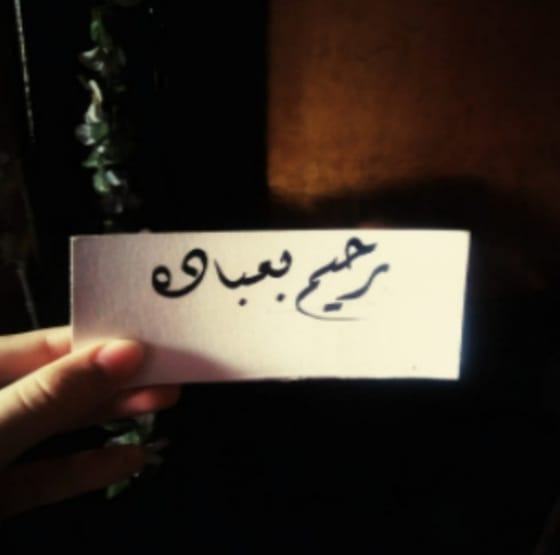 رحيم بعباده